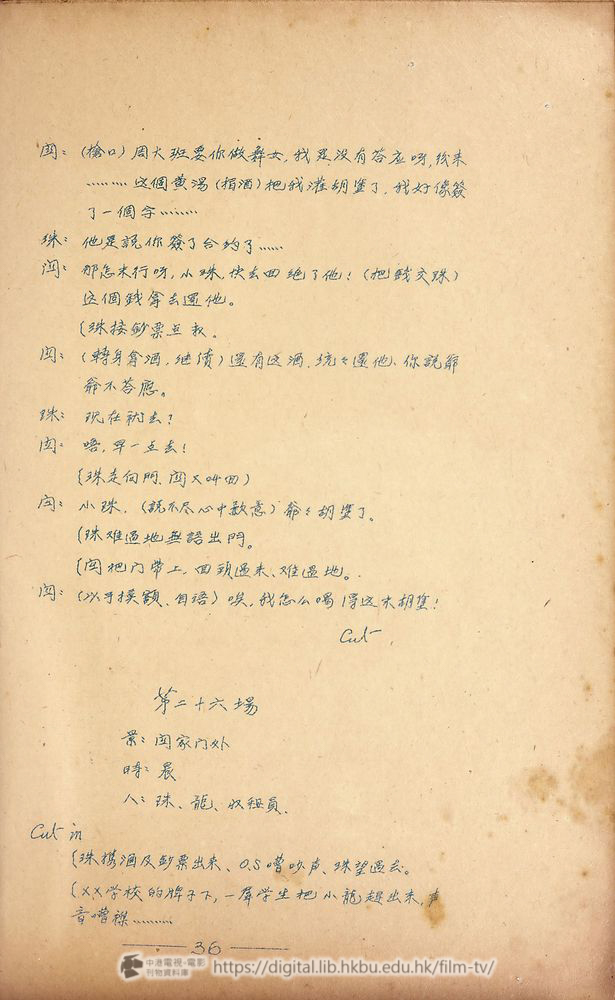 闵：(搶口)周大班要你做舞女，我是没有答应呀，後来
………这個黄湯(指酒)把我灌胡塗了，我好像簽
了一個字………
珠：他是説你簽了合約了……
闵：那怎末行呀，小珠，快去回绝了他！(把錢交珠)
这個錢拿去還他。
(珠接鈔票点数。
闵：(轉身拿酒，继续)還有这酒，统々還他、你説爺
爺不答應。
珠：现在就去？
闵：唔，早一点去！
(珠走向門、闵又叫回)
闵：小珠，(説不尽心中歉意)爺々胡塗了。
(珠难過地無語出門。
(闵把门带上，回頭過来、难過地。
闵：(以手摸額、自语)唉，我怎么喝得这末胡塗！
Cut
第二十六場
景：闵家门外
時：晨
人：珠、龍、收租員、
Cut in
(珠携酒及鈔票出来、O.S嘈吵声、珠望過去。
(××学校的牌子下，一群学生把小龍趕出来，声
音嘈雜………
36
中港電視·電影
刊物資料庫
https://digital.lib.hkbu.edu.hk/film-tv/